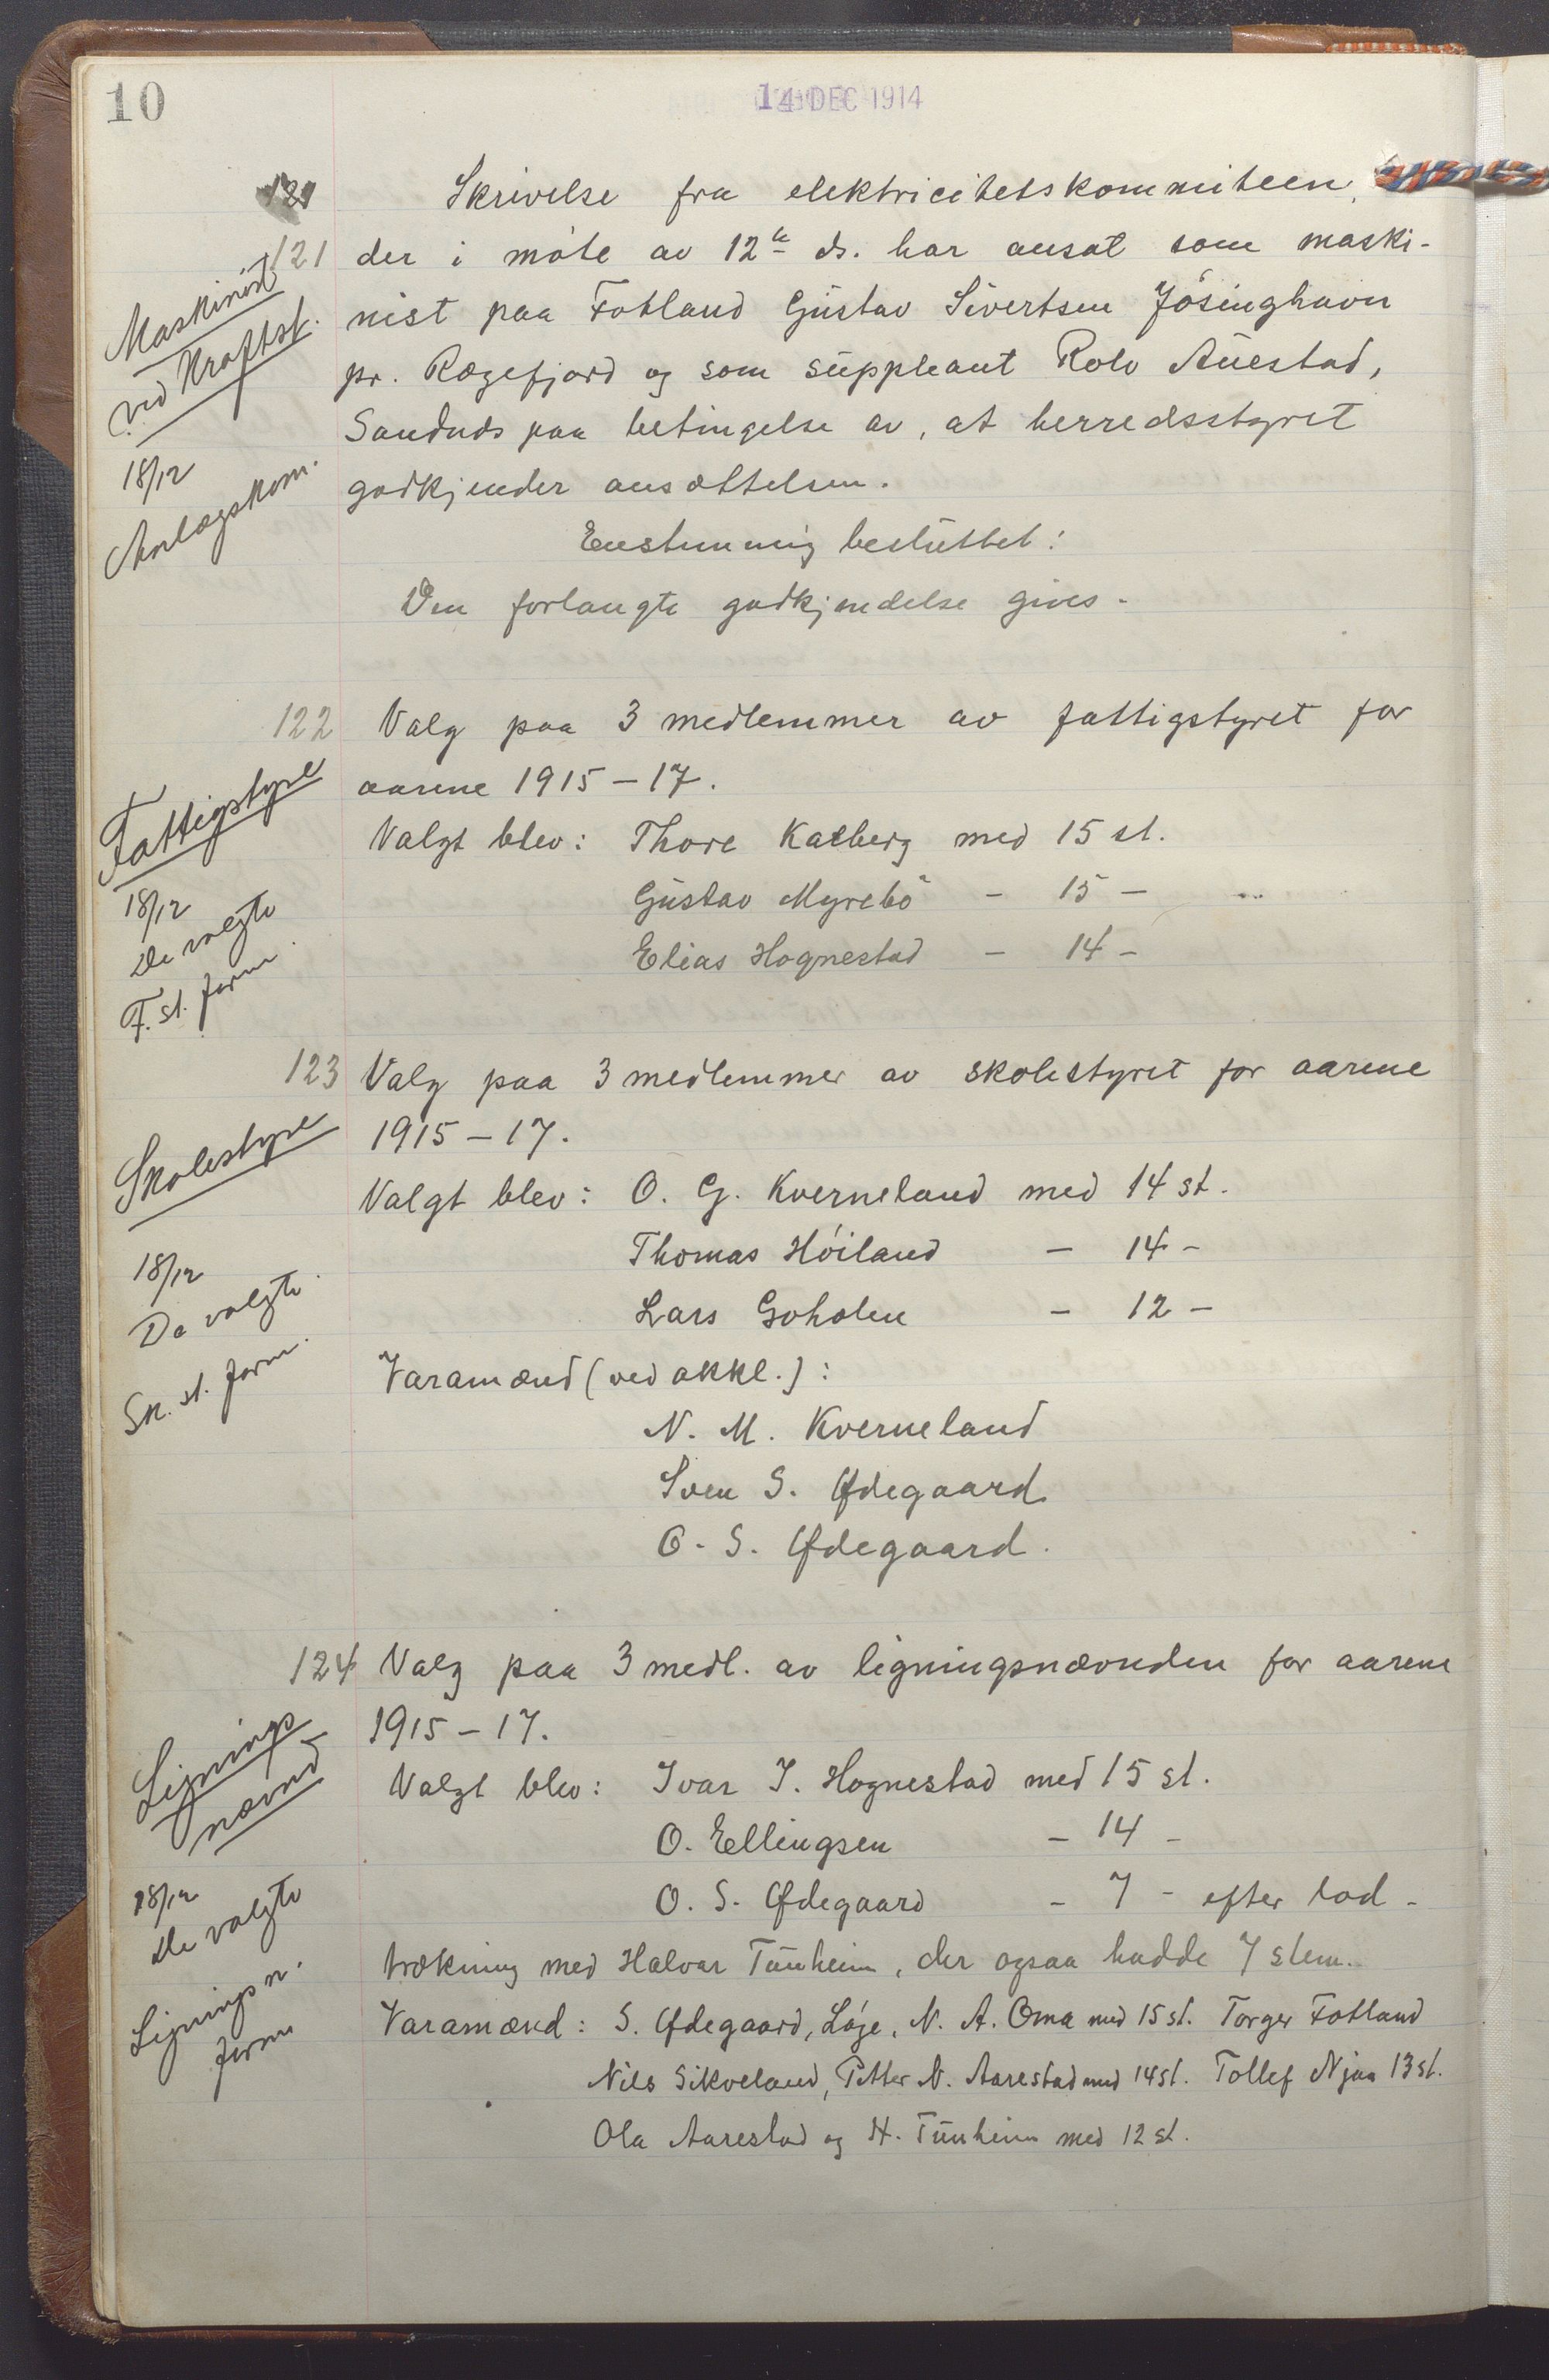 10
14 DEC 1914
121
Skrivelse fra elektricitetskommiteen,
121 der i møte av 12te ds. har ansat som maski-
nist paa Fotland Gustav Sivertsen Jøsinghavn
pr. Rægefjord og som suppleant Rolv Auestad,
Sandnds paa betingelse av, at herredsstyret
godkjender ansættelsen.
Enstemmig besluttet:
Den forlangte godkjendelse gives.
Maskinist
ved Kraftst.
18/12
Anlægskom.
122 Valg paa 3 medlemmer av fattigstyret for
aarene 1915-17.
Valgt blev: Thore Kalberg med 15 st.
Gustav Myrebø - 15 -
Elias Hognestad - 14 -
Fattigstyre
18/12
De valgte
F. st. form
123 Valg paa 3 medlemmer av skolestyret for aarene
1915-17.
Valgt blev: O. G. Kverneland med 14 st.
Thomas Høiland - 14 -
Lars Goholen - 12 -
Varamænd (ved akkl.):
N. M. Kverneland
Sven S. Ødegaard
O. S. Ødegaard.
Skolestyre
18/12
De valgte
Sk. st. form.
124 Valg paa 3 medl. av ligningsnævnden for aarene
1915-17.
Valgt blev: Ivar I. Hognestad med 15 st.
O. Ellingsen - 14 -
O. S. Ødegaard - 7 - efter lod-
trækning med Halvar Tunheim, der ogsaa hadde 7 stem.
Varamænd: S. Ødegaard, Løge, N. A. Oma med 15 st. Torger Fotland
Nils Sikveland, Petter N. Aarestad med 14 st. Tollef Njaa 13 st.
Ola Aarestad og H. Tunheim med 12 st.
Lignings
nævnd
18/12
De valgte
Lignings n.
form